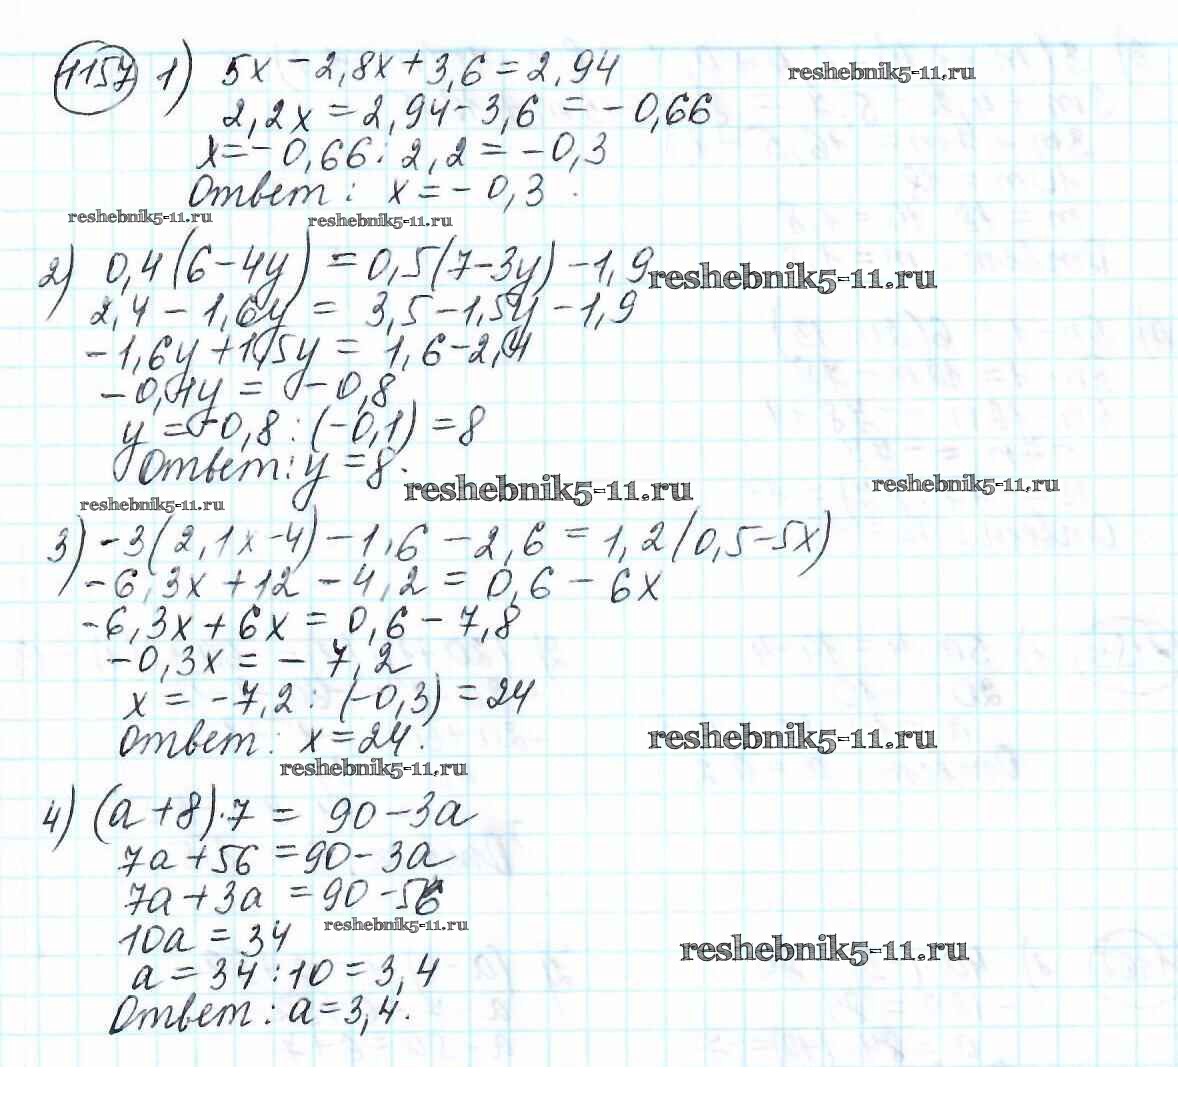 1157 1) 5x - 2,8x + 3,6 = 2,94
reshebnik5-11.ru
2,2x = 2,94 - 3,6 = - 0,66
x = - 0,66 : 2,2 = - 0,3
Ответ: x = - 0,3.
reshebnik5-11.ru reshebnik5-11.ru
2) 0,4(6 - 4y) = 0,5(7 - 3y) - 1,9
reshebnik5-11.ru
2,4 - 1,6y = 3,5 - 1,5y - 1,9
- 1,6y + 1,5y = 1,6 - 2,4
- 0,1y = - 0,8
y = - 0,8 : (-0,1) = 8
Ответ: y = 8.
reshebnik5-11.ru reshebnik5-11.ru
reshebnik5-11.ru
3) - 3(2,1x - 4) - 1,6 - 2,6 = 1,2(0,5 - 5x)
- 6,3x + 12 - 4,2 = 0,6 - 6x
- 6,3x + 6x = 0,6 - 7,8
- 0,3x = - 7,2
x = - 7,2 : (-0,3) = 24
Ответ: x = 24.
reshebnik5-11.ru
reshebnik5-11.ru
4) (a + 8)·7 = 90 - 3a
7a + 56 = 90 - 3a
7a + 3a = 90 - 56
reshebnik5-11.ru
10a = 34
reshebnik5-11.ru
a = 34 : 10 = 3,4
Ответ: a = 3,4.